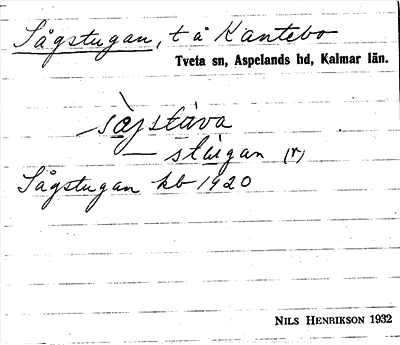 Sågstugan, t å Kantebo
Tveta sn, Aspelands hd, Kalmar län.
— stúgan (r)
Sågstugan kb 1920
NILS HENRIKSON 1932